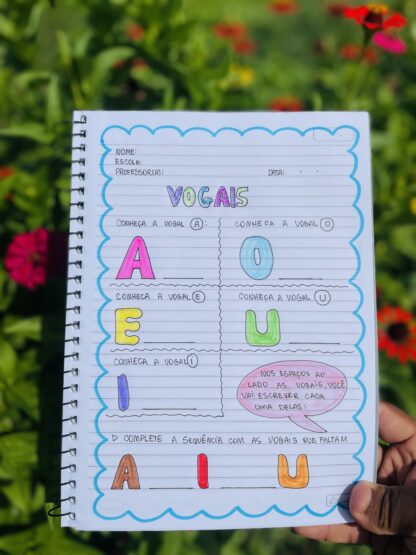 NOME:
ESCOLA:
PROFESSOR(A): DATA: . .
VOGAIS
CONHEÇA A VOGAL A:
CONHEÇA A VOGAL O
A
O
CONHEÇA A VOGAL E
CONHEÇA A VOGAL U
E
U
CONHEÇA A VOGAL I
I
NOS ESPAÇOS AO
LADO AS VOGAIS, VOCÊ
VAI ESCREVER CADA
UMA DELAS:
COMPLETE A SEQUÊNCIA COM AS VOGAIS QUE FALTAM
A I U